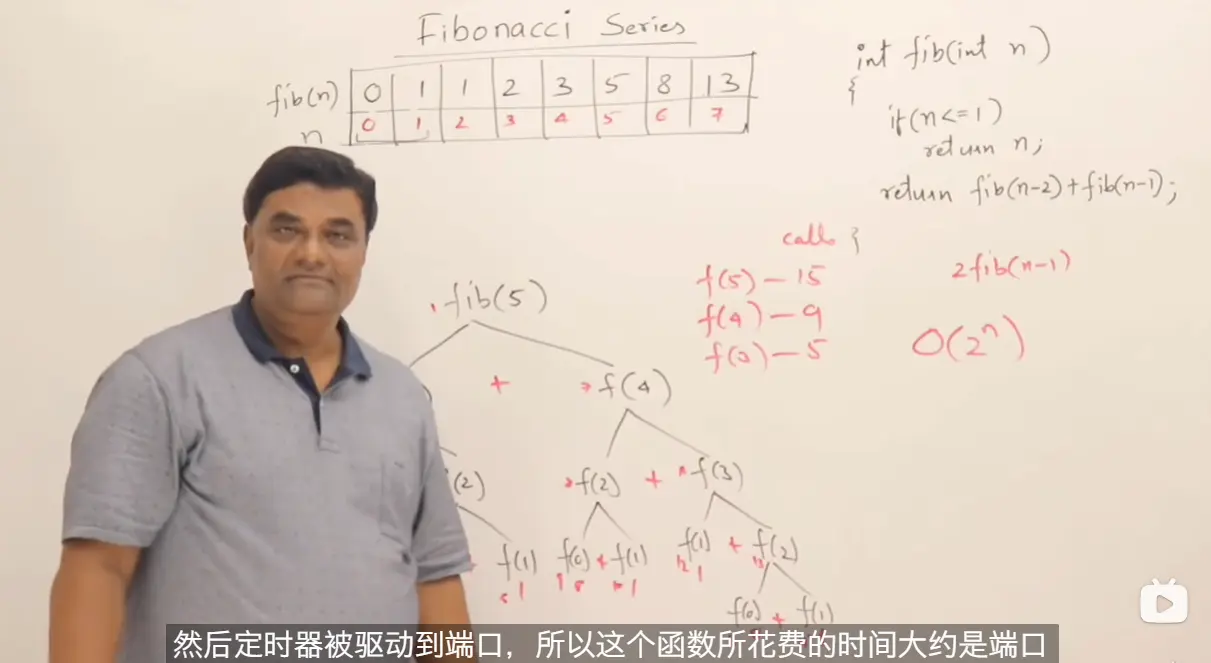 Fibonacci Series
fib(n) 0 1 1 2 3 5 8 13
n 0 1 2 3 4 5 6 7
int fib(int n)
{
if(n<=1)
return n;
return fib(n-2)+fib(n-1);
}
calls
f(5)-15
f(4)-9
f(3)-5
2fib(n-1)
O(2ⁿ)
fib(5)
+ f(4)
(2) f(2) + f(3)
f(1) f(0) + f(1) f(1) + f(2)
f(0) + f(1)
然后定时器被驱动到端口，所以这个函数所花费的时间大约是端口